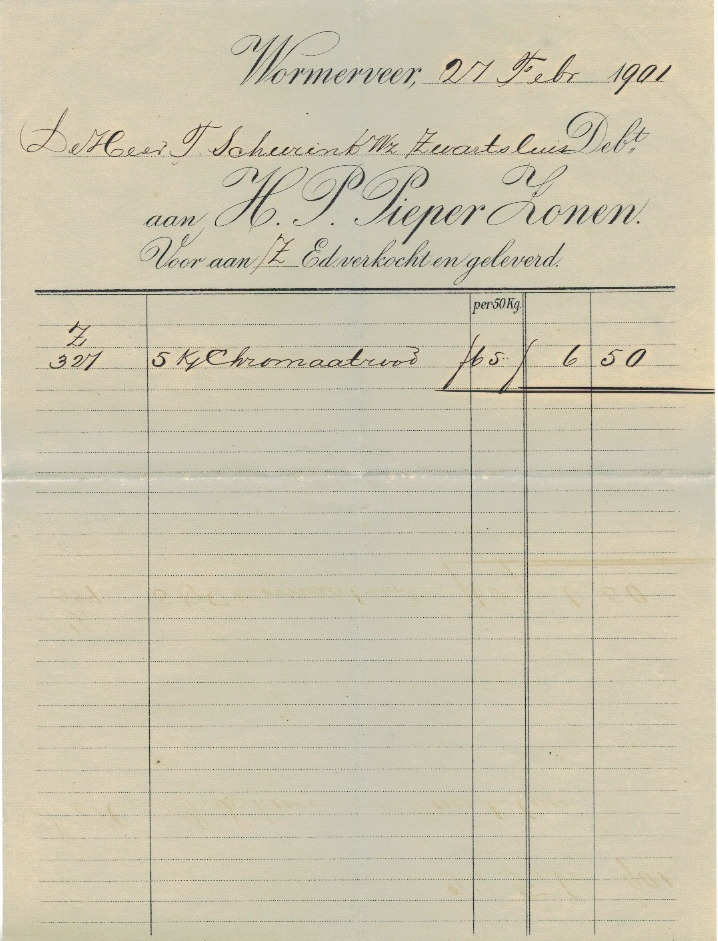 Wormerveer, 27 Febr 1901
De Heer T. Scheurink Wz Zwartsluis Debt,
aan H. P. Pieper Zonen.
Voor aan Z Ed. verkocht en geleverd.
per 50 Kg.
Z
327 5 Kg Chromaatrood f 65 f 6 50